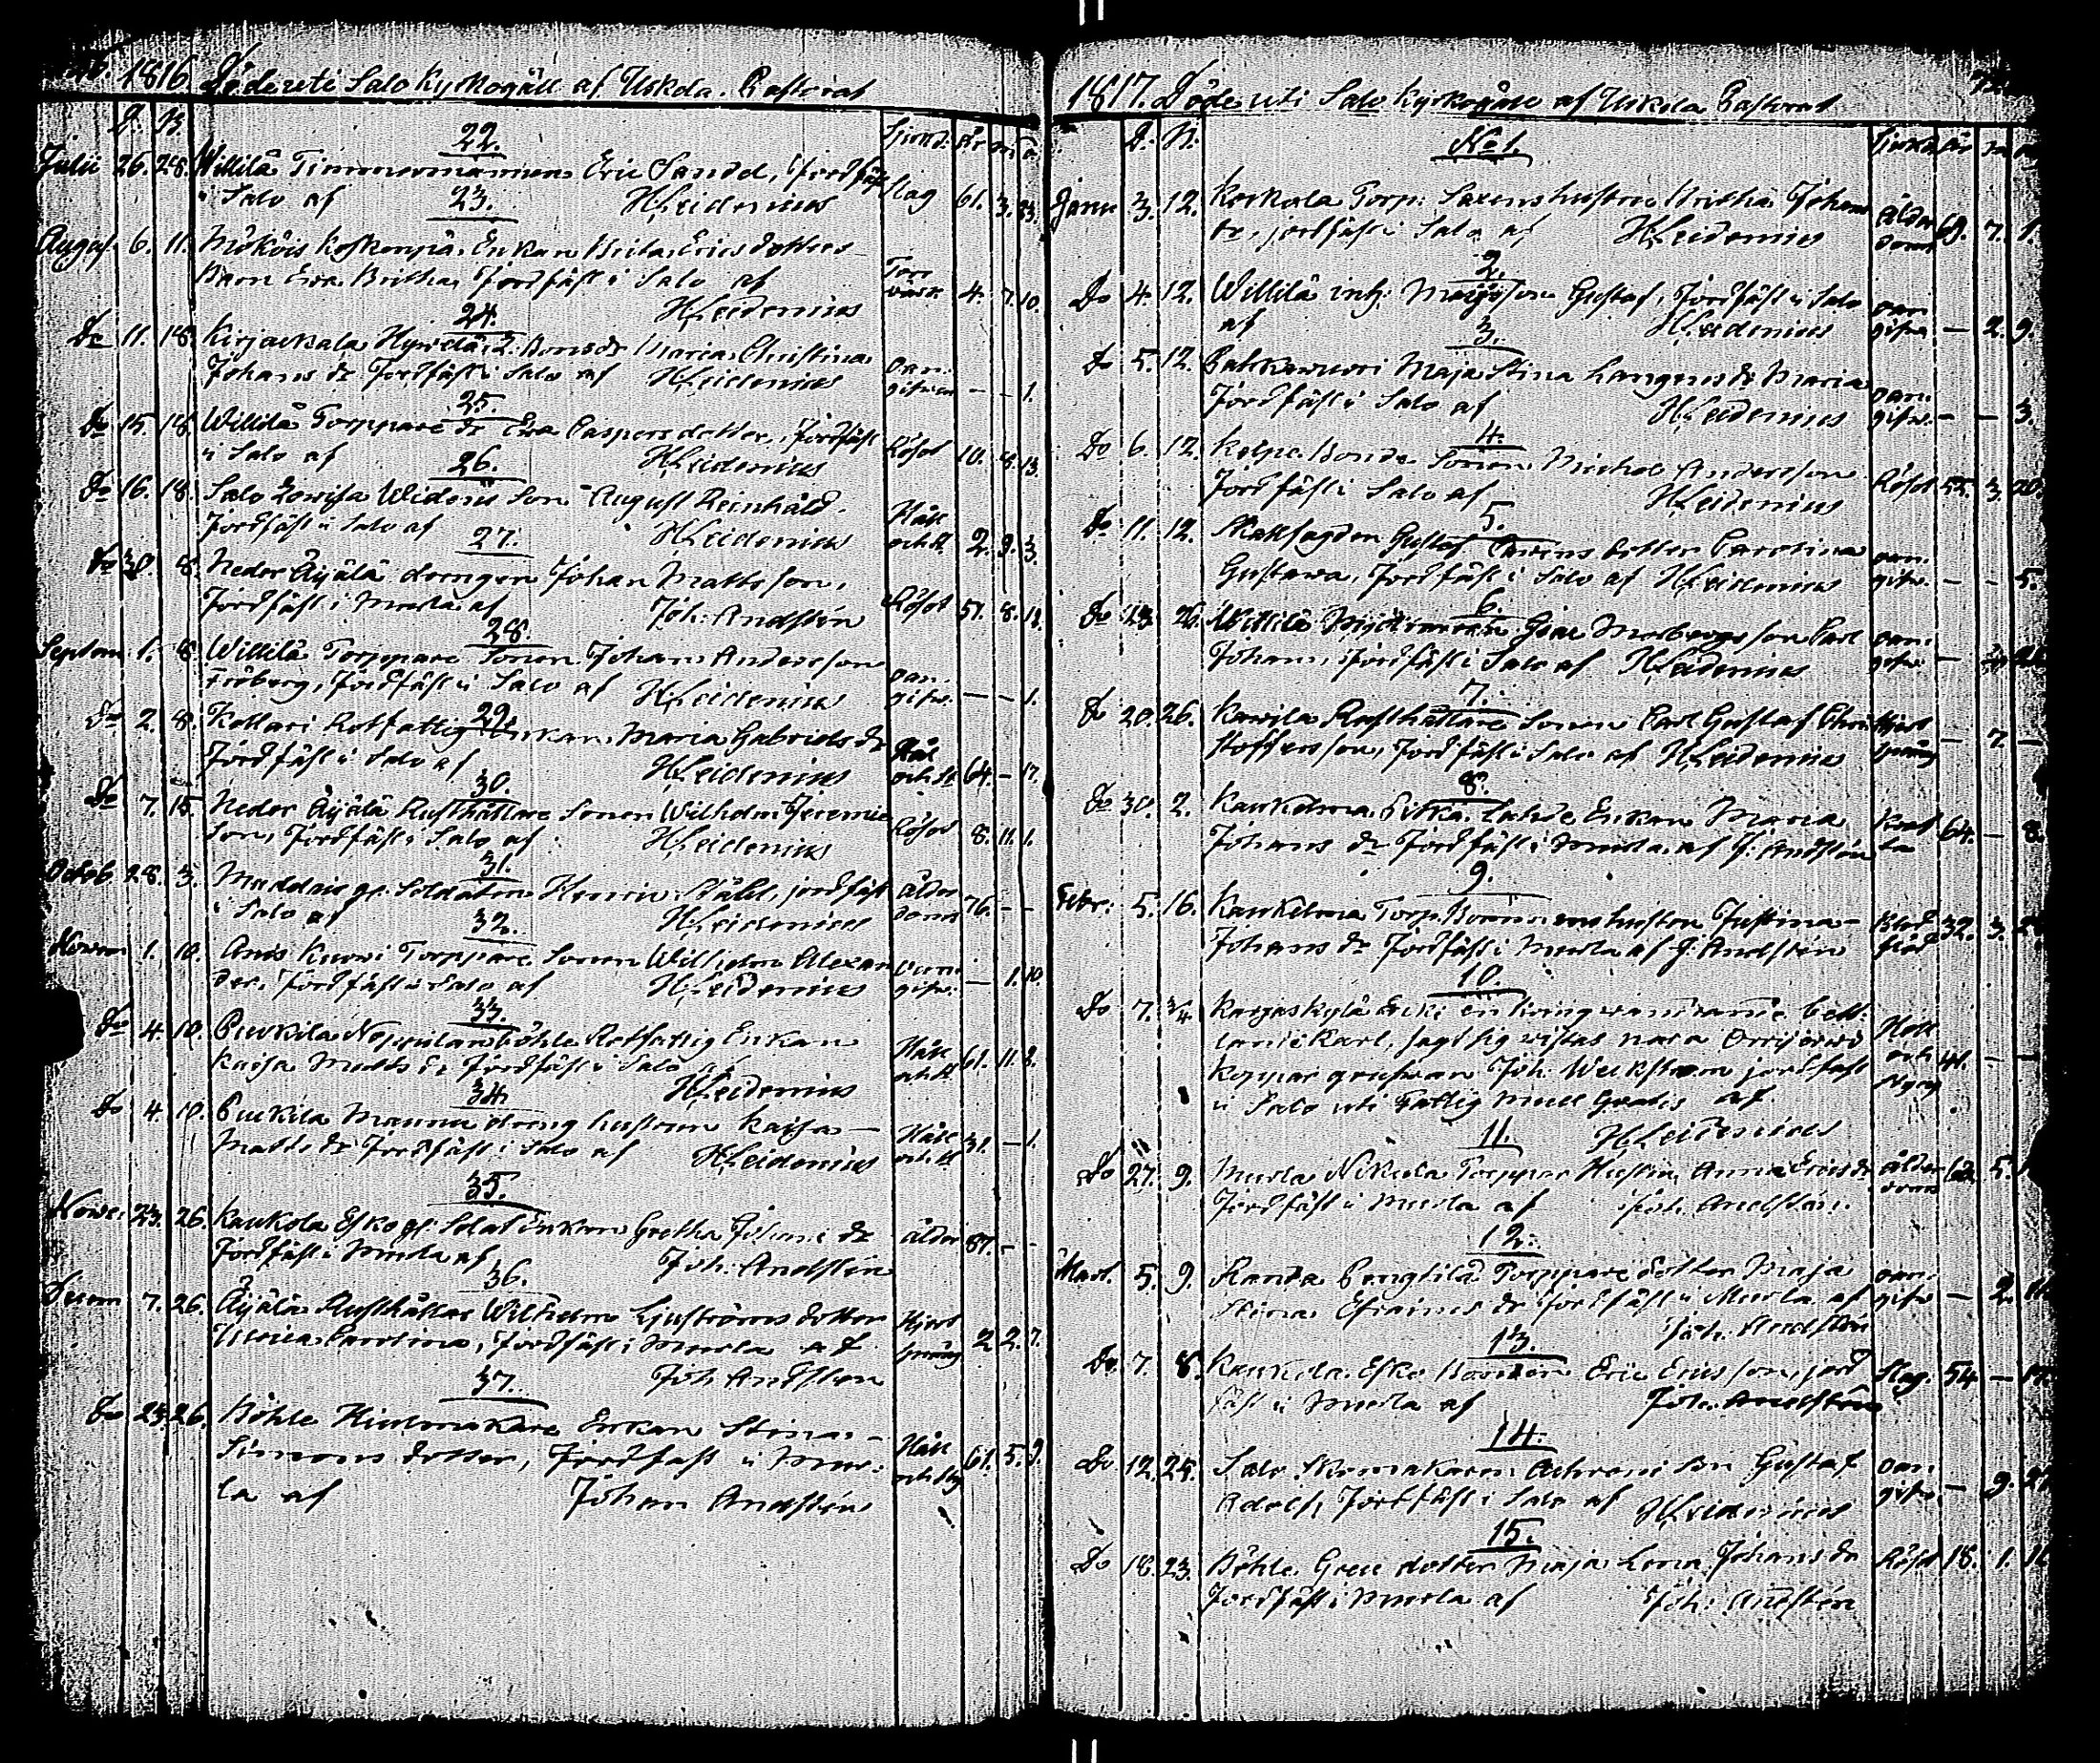 1816. Döde uti Salo Kyrkogäll af Uskela Pastorat
D. B. Sjukd: År m d
22.
Julii 26. 28. Willilä Timmermannen Eric Sandel, jordfäst Slag 61. 3. 23.
i Salo af HLeidenius
23.
August 6. 11. Koskenpä Enkan Brita Erics dotters
Barn Eva Britha, Jordfäst i Salo af 4. 7. 10.
HLeidenius
24.
Do 11. 18. Kirjackala Hyvelä Bonde dr Maria Christina
Johans dr Jordfäst i Salo af HLeidenius oangifven - - 1.
25.
Do 15. 18. Willilä Torppare dr Eva Caspers dotter, jordfäst
i Salo af HLeidenius Rösot 10. 8. 13.
26.
Do 16. 18. Salo Lowisa Widens Son August Reinhåld.
Jordfäst i Salo af HLeidenius Håll och st 2. 9. 3.
27.
Do 30. 8. Neder Äijälä drengen Johan Mattsson,
Jordfäst i Murla af Joh: Andstén Rösot 51. 8. 18.
28.
Septem 1. 8. Willilä Torppare Sonen Johan Andersson
Fröberg, Jordfäst i Salo af HLeidenius oangifv. - - 1.
29.
Do 2. 8. Kottari Rotfattig Enkan Maria Gabriels dr
Jordfäst i Salo af HLeidenius Håll och st 64. - 17.
30.
Do 7. 15. Neder Äijälä Rusthållare Sonen Wilhelm Jeremie
son, Jordfäst i Salo af HLeidenius Rösot 8. 11. 1.
31.
Octob 28. 3. gl. Soldaten Henric Ståhl, jordfäst
i Salo af HLeidenius ålderdom 76. - -
32.
Novem 1. 10. Anis Kuori Torppare Sonen Wilhelm Alexan
der, jordfäst i Salo af HLeidenius oangifv. - 1. 10.
33.
Do 4. 10. Puckila Böhle Rotfattig Enkan
Kaisa Matts dr Jordfäst i Salo af HLeidenius Håll och st 61. 11. 2.
34.
Do 4. 10. Puckila Mauna dreng hustrun Kaisa
Matts dr Jordfäst i Salo af HLeidenius Håll och st 31. - 1.
35.
Nove. 23. 26. Kaukola Esko gl. Soldat Enkan Gretha Johans dr
Jordfäst i Murla af Joh: Andstén ålder 87. - -
36.
Decem 7. 26. Äijälä Rusthållar Wilhelm Ljuströms dotter
Ulrica Carolina, Jordfäst i Murla af
Joh Andsten 2 2. 7.
37.
Do 23. 26. Böhle Hiulmakare Enkan Stina
Simons dotter, Jordfäst i Mur
la af Johan Andstén Håll och styng 61. 5. 9.
1817. Döde uti Salo Kyrkogäll af Uskela Pastorat
D. B. Sjukd: År m d
No 1.
Janu 3. 12. Korkola Torp: Saxens hustru Britha Johans
dr, jordfäst i Salo af HLeidenius ålderdom 63. 7. 1.
2.
Do 4. 12. Willilä Son Gustaf, Jordfäst i Salo
af HLeidenius oangifven - 2. 9.
3.
Do 5. 12. Maja Stina Langens dr Maria
Jordfäst i Salo af HLeidenius oangifv. - - 3.
4.
Do 6. 12. Bonde Sonen Michel Andersson
Jordfäst i Salo af HLeidenius Rösot 55. 3. 20.
5.
Do 11. 12. Gustaf dotter Carolina
Gustawa, Jordfäst i Salo af HLeidenius oangifv. - - 5.
6.
Do 13 26. Willilä son Carl
Johan, jordfäst i Salo af HLeidenius oangifv.
7.
Do 20. 26. Kavila Rusthållare Sonen Carl Gustaf Chri
stoffersson, Jordfäst i Salo af HLeidenius - 7. -
8.
Do 30. 2. Kaukelma Pitkä Lahde Enkan Maria
Johans dr Jordfäst i Murla af J: Andstén 64. - 8.
9.
Febr: 5. 16. Kaukelma Torp. hustru Justina
Johans dr Jordfäst i Murla af J: Andstén 32. 3.
10.
Do 7. Karjaskylä en kringvandrande bett
lande Karl, sagt sig vistas nära Orrijärvi
koppar grufvan Joh: Weckstrom jordfäst
i Salo uti Fattig mull Gratis af
HLeidenius Håll och styng 41. - -
11.
Do 27. 9. Murla Nikula Torppar Hustru Anna Erics dr
Jordfäst i Murla af Joh: Andstén. ålderdom 62. 5.
12.
Mart. 5. 9. Randa Pengtilä Torppare dotter Maja
Stina Efraims dr jordfäst i Murla af
Joh: Andstén oangifv - 2.
13.
Do 7. 8. Kaukola Esko Bonden Eric Ericsson, jord
fäst i Murla af Joh: Andstén Slag. 54. -
14.
Do 12. 25. Salo Skomakaren Son Gustaf
Adolf, Jordfäst i Salo af HLeidenius oangifv. - 9.
15.
Do 18. 23. Böhle Greu dotter Maja Lena Johans dr
Jordfäst i Murla af Joh: Andstén Rösot 18. 1.